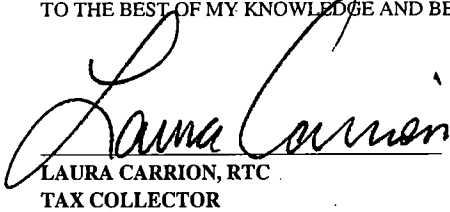 TO THE BEST OF MY KNOWLEDGE AND BE
Laura Carrion
LAURA CARRION, RTC
TAX COLLECTOR